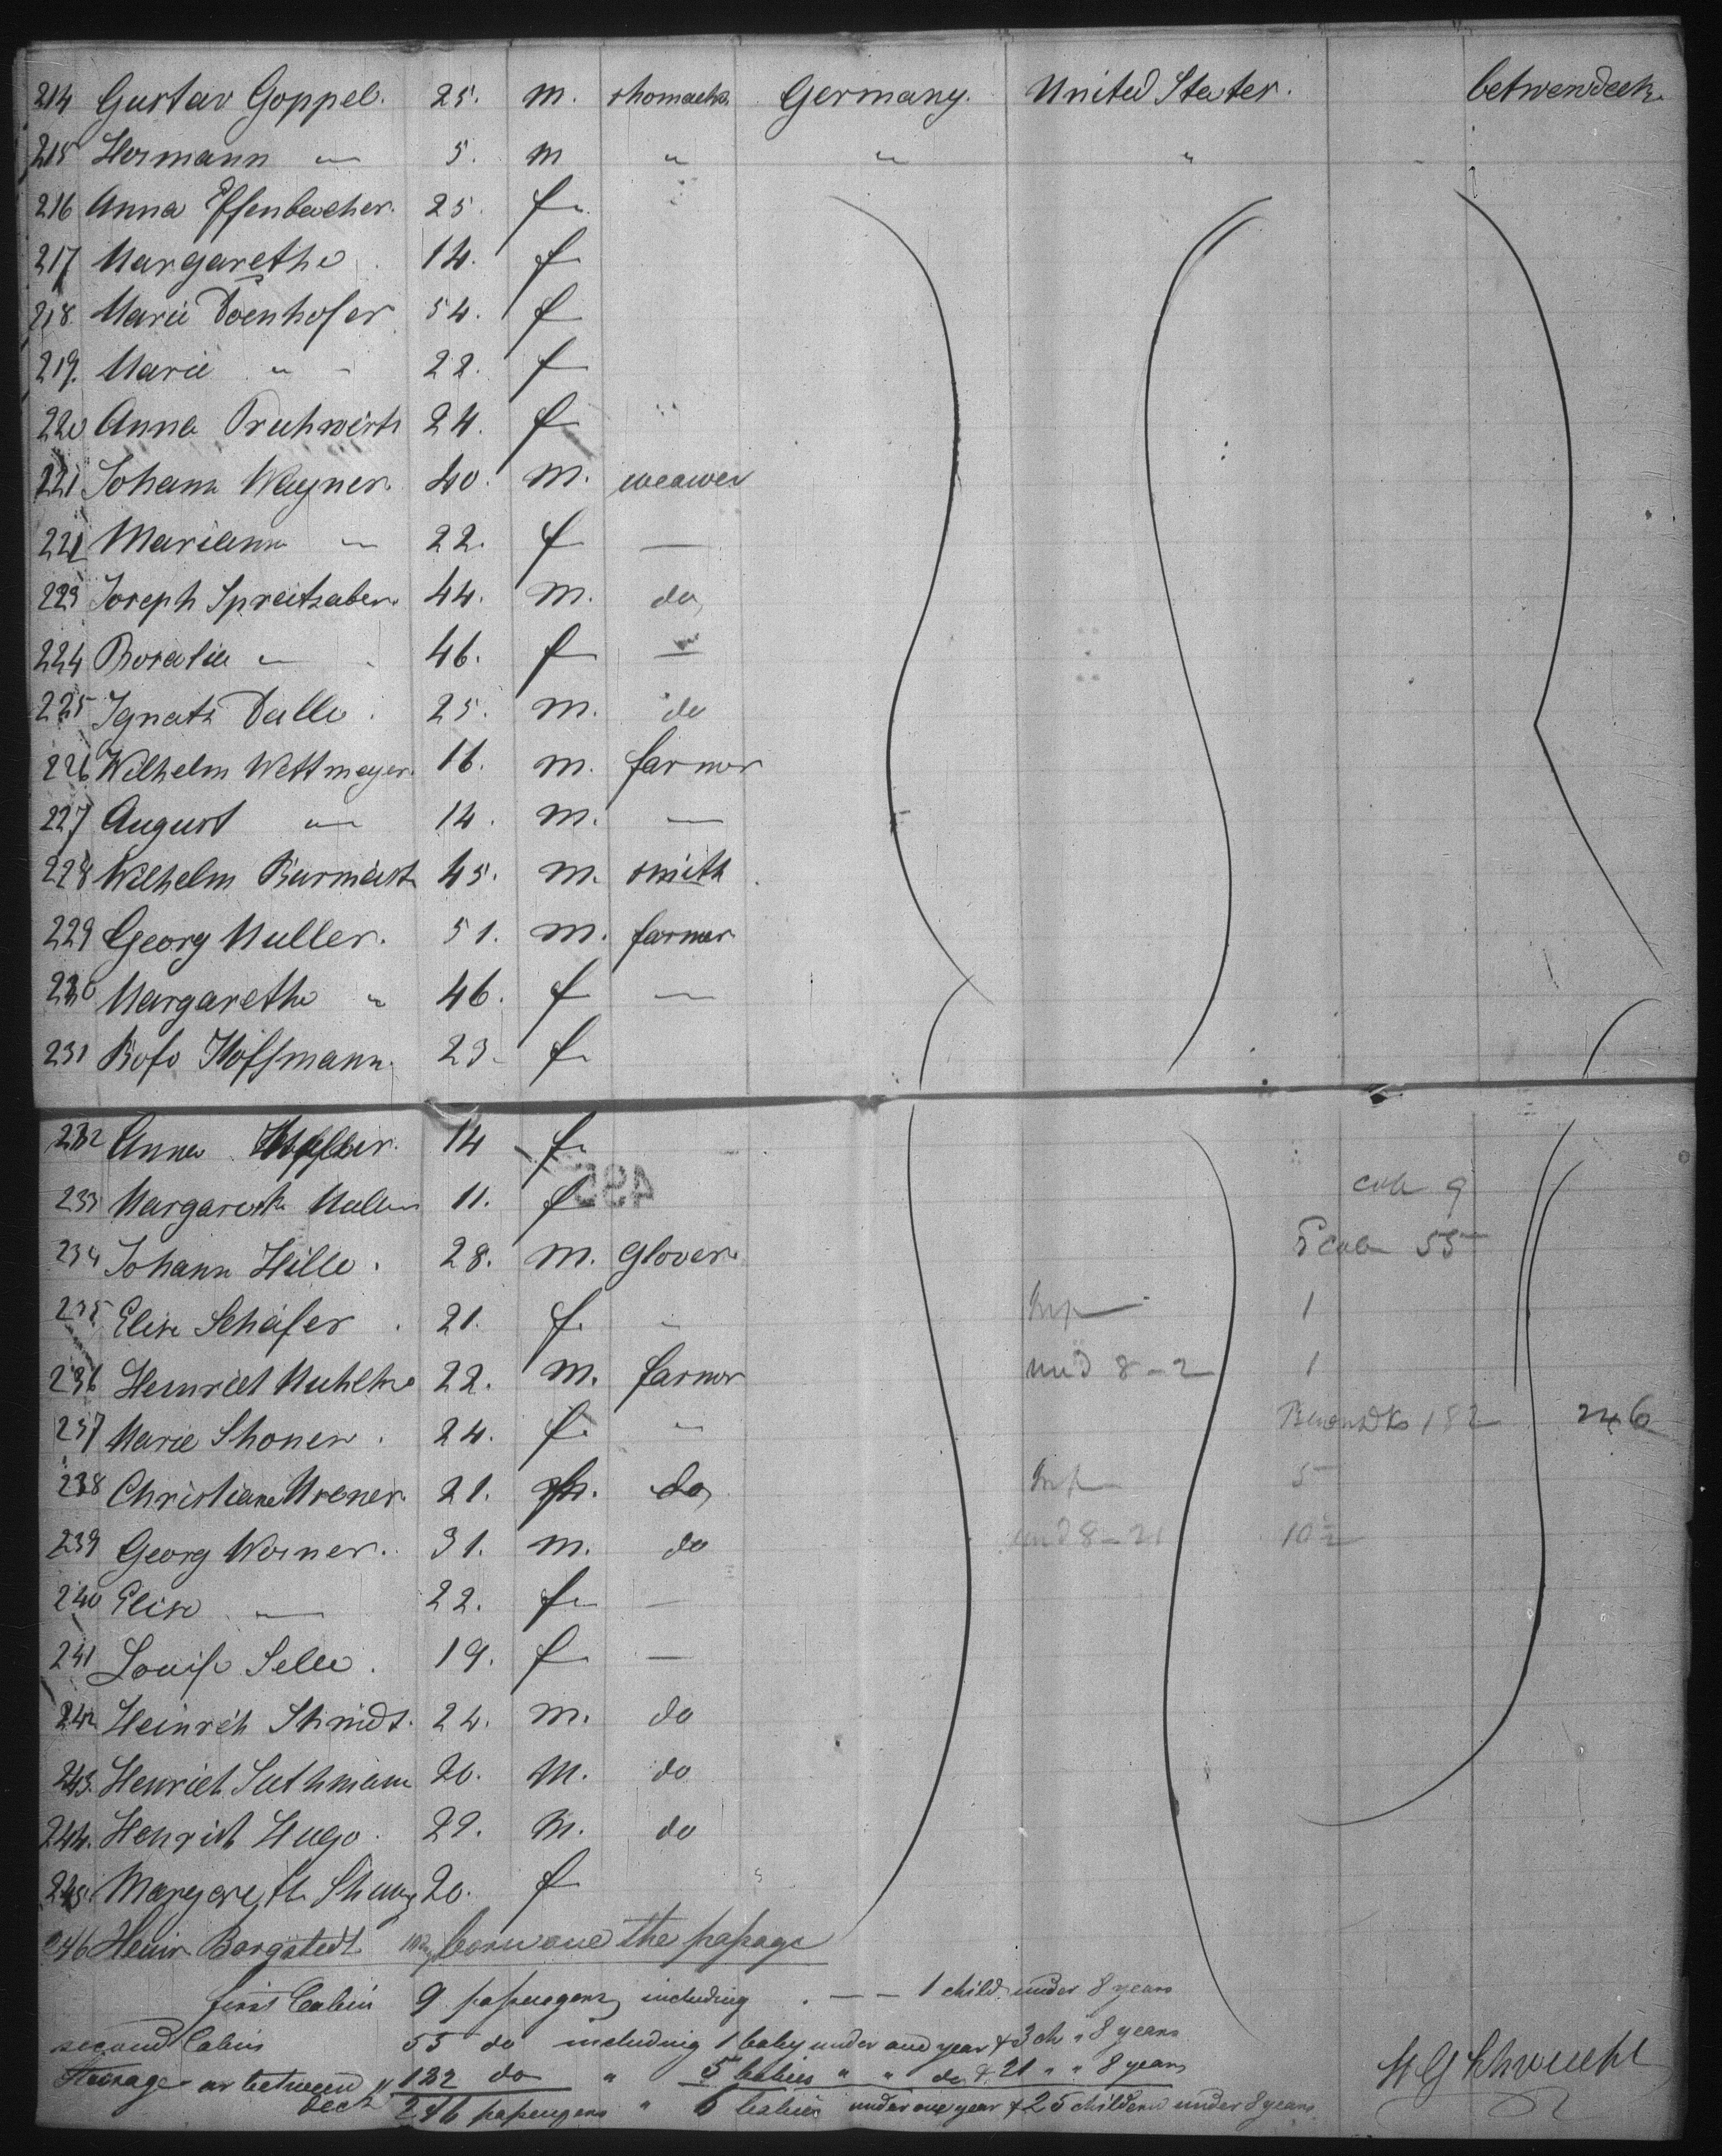 214 Gustav Goppel. 25. m. shomach. Germany. United States. betwendeck
215 Hermann " 5. m " " "
216 Anna Effenbacher. 25. f
217 Margarethe 14. f
218 Marie Doenhofer 54. f
219. Marie " 22. f
220 Anna Fruhwirth 24. f
221 Johann Wagner. 40. m. weawer
222 Mariann " 22. f —
223 Joseph Spreitzaber. 44. m. do
224 Rosalie " 46. f —
225 Ignatz Dalle. 25. m. do
226 Wilhelm Wettmeyer. 16. m. farmer
227 August " 14. m. —
228 Wilhelm Burmeist 45. m. smith
229 Georg Muller. 51. m. farmer
230 Margarethe " 46. f —
231 Hoffmann. 23. f
232 Anna 14 f
495
233 Margareth Muller 11. f
cab 9
234 Johann Hille. 28. m. Glover.
cab 55
235 Elise Schäfer. 21. f. "
1
236 Heinrich Muhlke 22. m. farmer
und 8 - 2 1
237 Marie Shoner. 24. f. "
182 246
238 Christiane 21. f. do
5
239 Georg Werner. 31. m. do
und 8 - 21
240 Elise " 22. f —
241 Louise Selle. 19. f —
242 Heinrich Shmidt. 24. m. do
243. Henrich Suthmann 20. m. do
244. Henrich Hugo. 29. m. do
245. Margareth 20. f
246 Heinr. Borgstedt born one the passage
first Cabin 9 passengers including — — 1 child under 8 years
second Cabin 55 do including 1 baby under one year & 3 ch " 8 years
Steerage or between deck 182 do " 5 babies " " do & 21 " " 8 years
246 passengers " 6 babies under one year & 25 children under 8 years